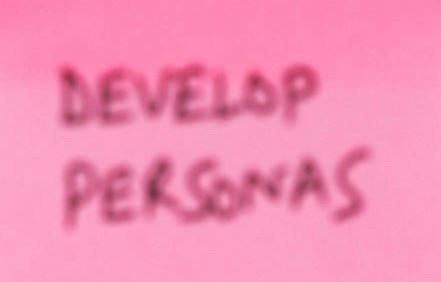 DEVELOP
PERSONAS